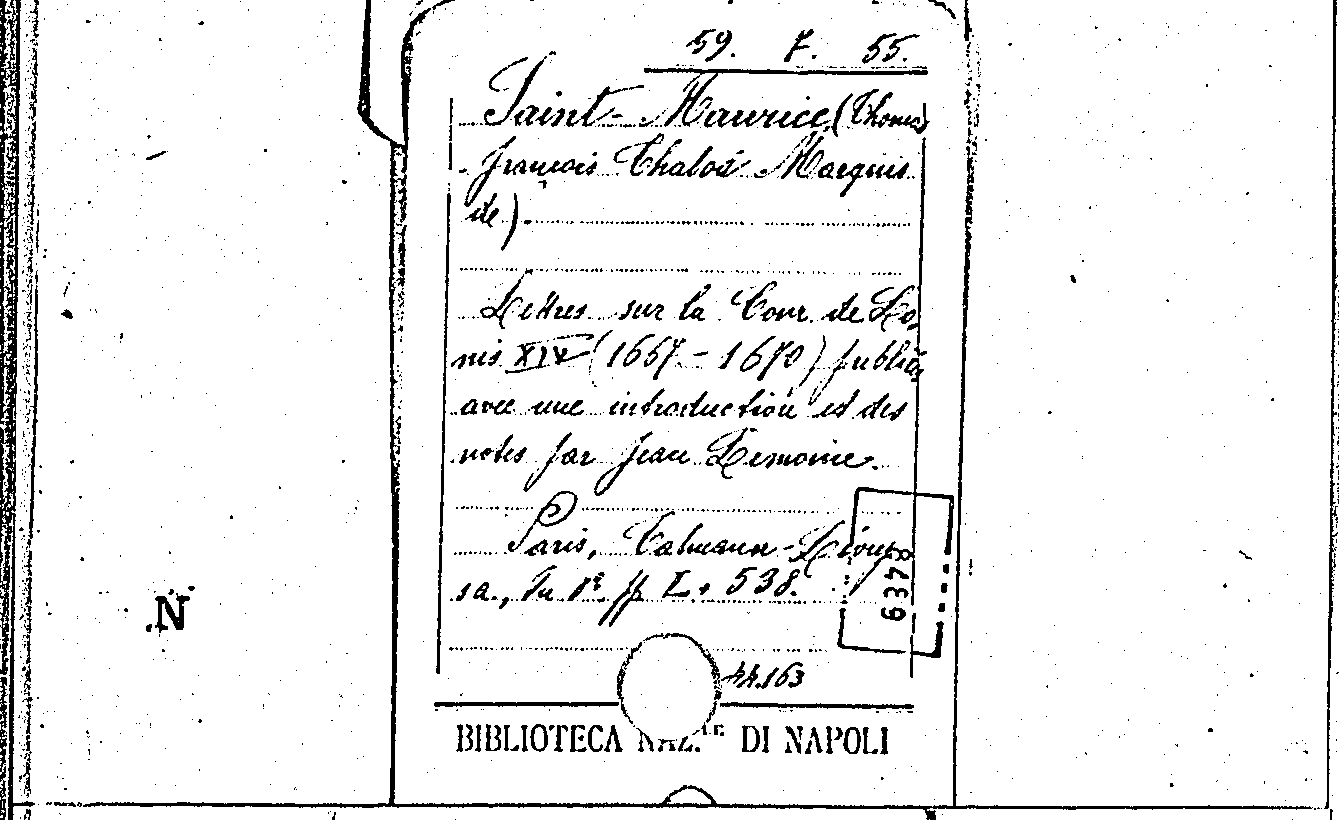 59. 7. 55.
Saint-Maurice (Thomas
François Chabod Marquis
de).
Lettres sur la Cour de Lo
uis XIV (1657-1670) publiés
avec une introduction et des
notes par Jean Lemoine.
Paris, Calmann-Lévy
sa., in 8º. pp L. 538.
8439
44.163
BIBLIOTECA NAZ.LE DI NAPOLI
N